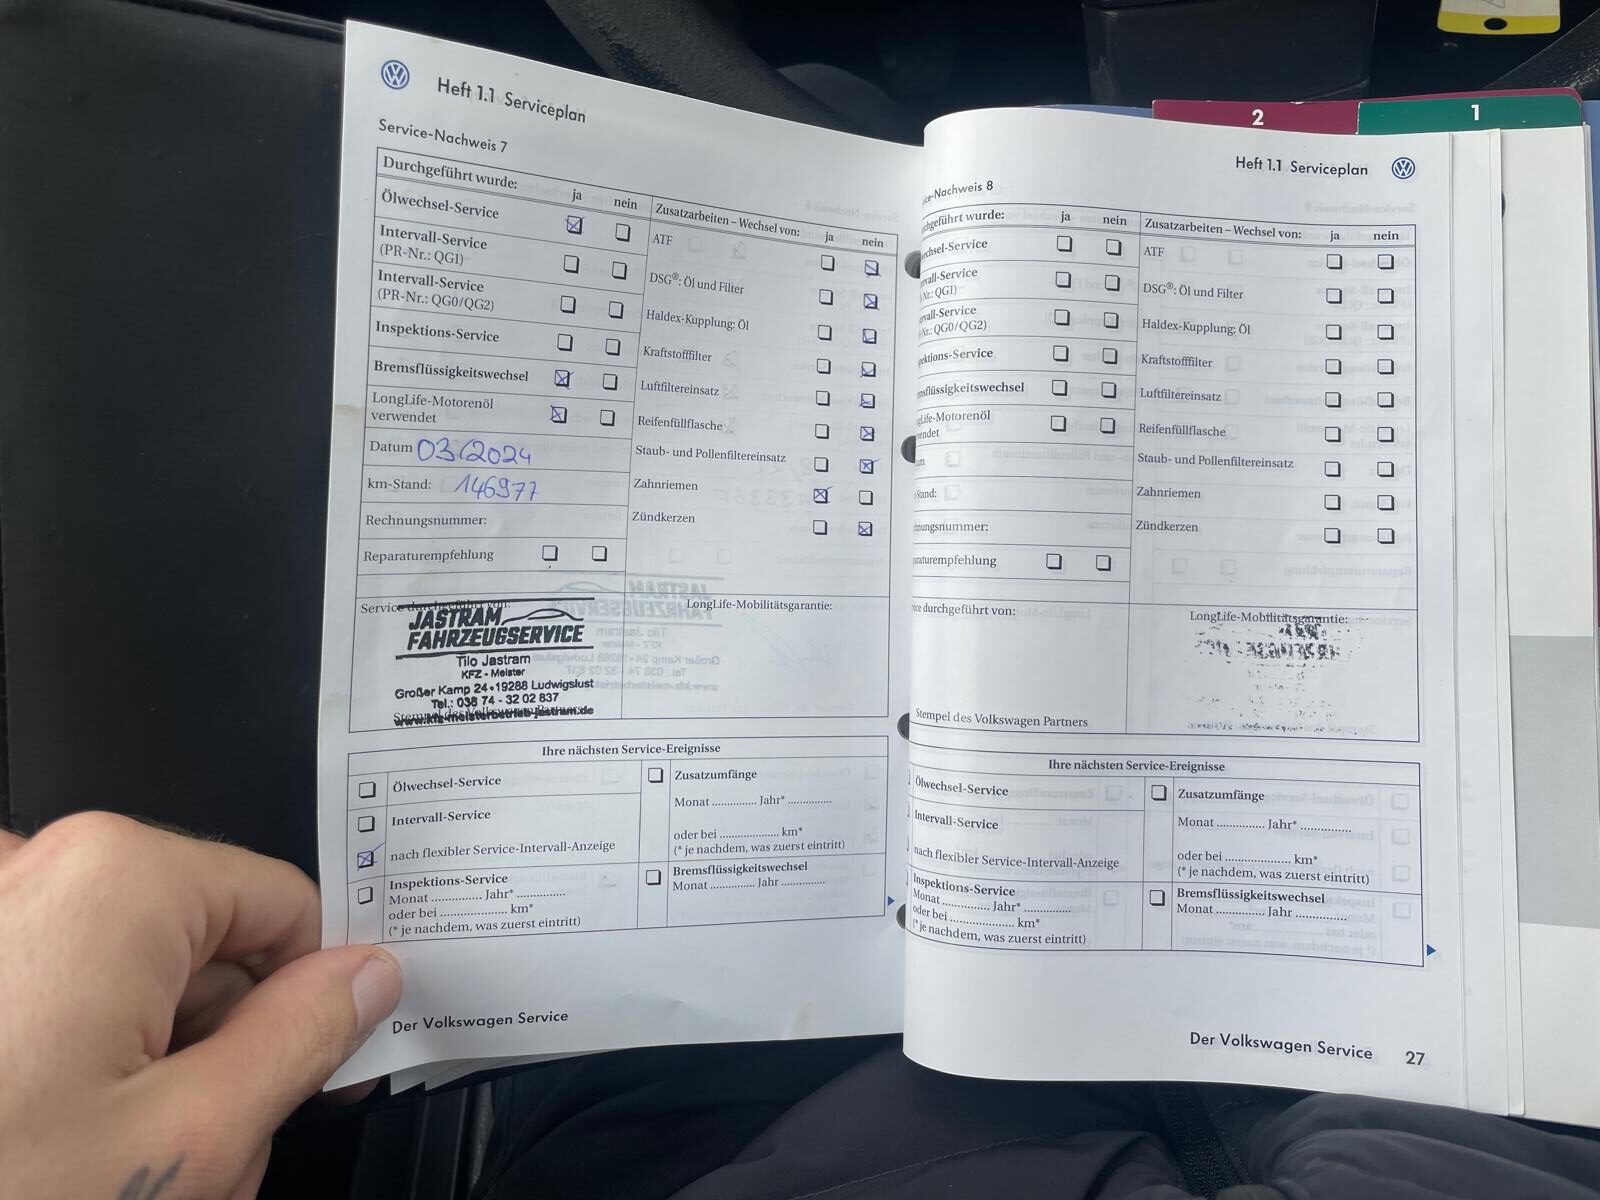 Heft 1.1 Serviceplan
Service-Nachweis 7
Durchgeführt wurde: ja nein
Ölwechsel-Service
Intervall-Service
(PR-Nr.: QG1)
Intervall-Service
(PR-Nr.: QG0/QG2)
Inspektions-Service
Bremsflüssigkeitswechsel
LongLife-Motorenöl
verwendet
Datum 03/2024
km-Stand: 146977
Rechnungsnummer:
Reparaturempfehlung
Zusatzarbeiten – Wechsel von: ja nein
ATF
DSG®: Öl und Filter
Haldex-Kupplung: Öl
Kraftstofffilter
Luftfiltereinsatz
Reifenfüllflasche
Staub- und Pollenfiltereinsatz
Zahnriemen
Zündkerzen
Service durchgeführt von:
JASTRAM
FAHRZEUGSERVICE
Tilo Jastram
KFZ - Meister
Großer Kamp 24 • 19288 Ludwigslust
Tel.: 038 74 - 32 02 837
www.kfz-meisterbetrieb-jastram.de
Stempel des Volkswagen Partners
LongLife-Mobilitätsgarantie:
Ihre nächsten Service-Ereignisse
Ölwechsel-Service
Intervall-Service
nach flexibler Service-Intervall-Anzeige
Inspektions-Service
Monat .............. Jahr* ..............
oder bei ..................... km*
(* je nachdem, was zuerst eintritt)
Zusatzumfänge
Monat .............. Jahr* ..............
oder bei ..................... km*
(* je nachdem, was zuerst eintritt)
Bremsflüssigkeitswechsel
Monat .............. Jahr ..............
Der Volkswagen Service
2
1
Heft 1.1 Serviceplan
ce-Nachweis 8
chgeführt wurde: ja nein
echsel-Service
rvall-Service
-Nr.: QG1)
rvall-Service
-Nr.: QG0/QG2)
ektions-Service
msflüssigkeitswechsel
ngLife-Motorenöl
wendet
um
Stand:
hnungsnummer:
araturempfehlung
Zusatzarbeiten – Wechsel von: ja nein
ATF
DSG®: Öl und Filter
Haldex-Kupplung: Öl
Kraftstofffilter
Luftfiltereinsatz
Reifenfüllflasche
Staub- und Pollenfiltereinsatz
Zahnriemen
Zündkerzen
ice durchgeführt von:
Stempel des Volkswagen Partners
LongLife-Mobilitätsgarantie:
Ihre nächsten Service-Ereignisse
Ölwechsel-Service
Intervall-Service
nach flexibler Service-Intervall-Anzeige
Inspektions-Service
Monat .............. Jahr* ..............
oder bei ..................... km*
(* je nachdem, was zuerst eintritt)
Zusatzumfänge
Monat .............. Jahr* ..............
oder bei ..................... km*
(* je nachdem, was zuerst eintritt)
Bremsflüssigkeitswechsel
Monat .............. Jahr ..............
Der Volkswagen Service 27